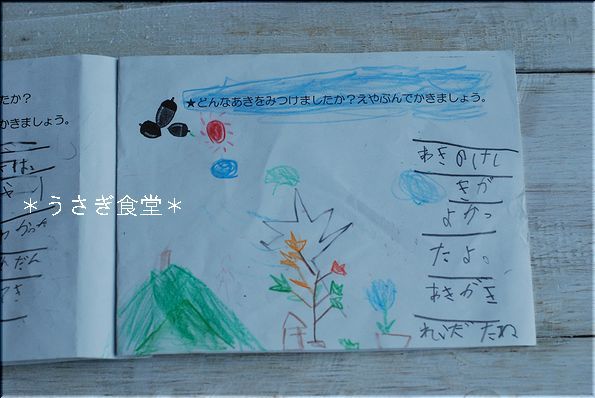 たか？
かきましょう。
★どんなあきをみつけましたか？えやぶんでかきましょう。
あきのけし
きが
よかっ
たよ。
あきがき
れいだたね
＊うさぎ食堂＊